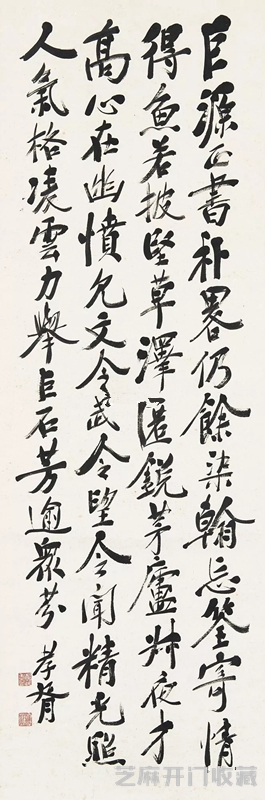 巨源正書朴畧仍餘染翰忘筌寄情
得魚若披堅草澤匿銳茅廬叔夜才
高心在幽憤允文令武令望令聞精光照
人氣格凌雲力舉巨石芳逾衆芬 孝胥
芝麻开门收藏